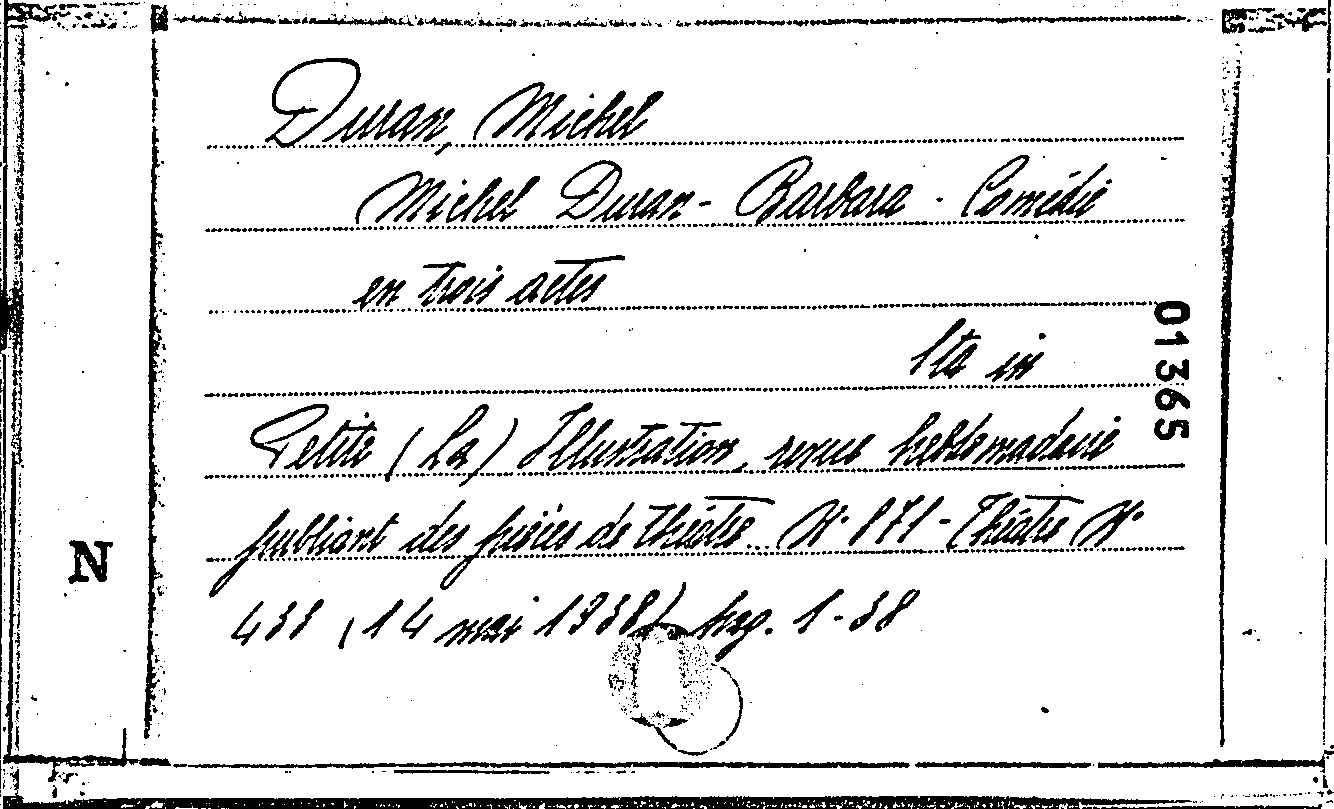 Duran, Michel
Michel Duran - Barbara - Comédie
en trois actes
Sta in
Petite (La) Illustration, revue hebdomadaire
publiant des pièces de théâtre. N° 871 - Théâtre N°
433 (14 mai 1938) pag. 1-38
01365
N